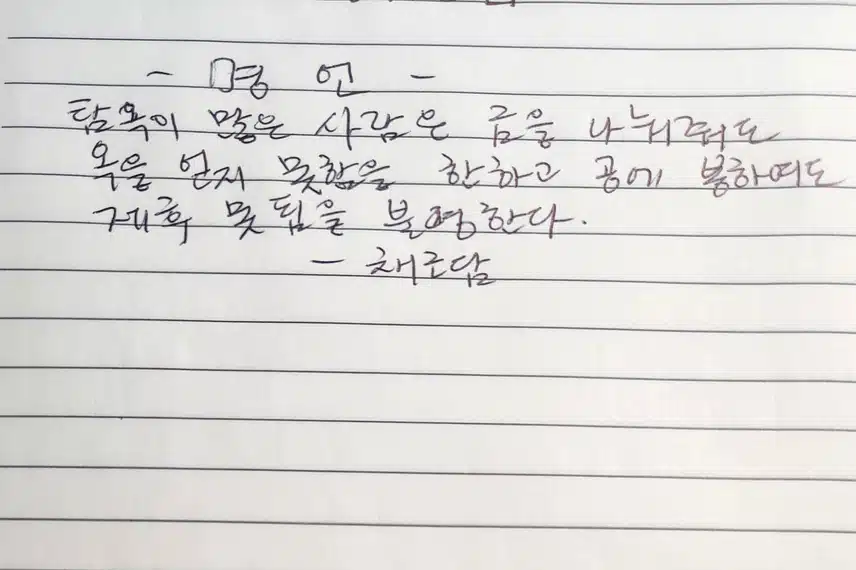 - 명 언 -
탐욕이 많은 사람은 금을 나눠줘도
옥을 얻지 못함을 한하고 공에 봉하여도
제후 못됨을 불평한다.
- 채근담